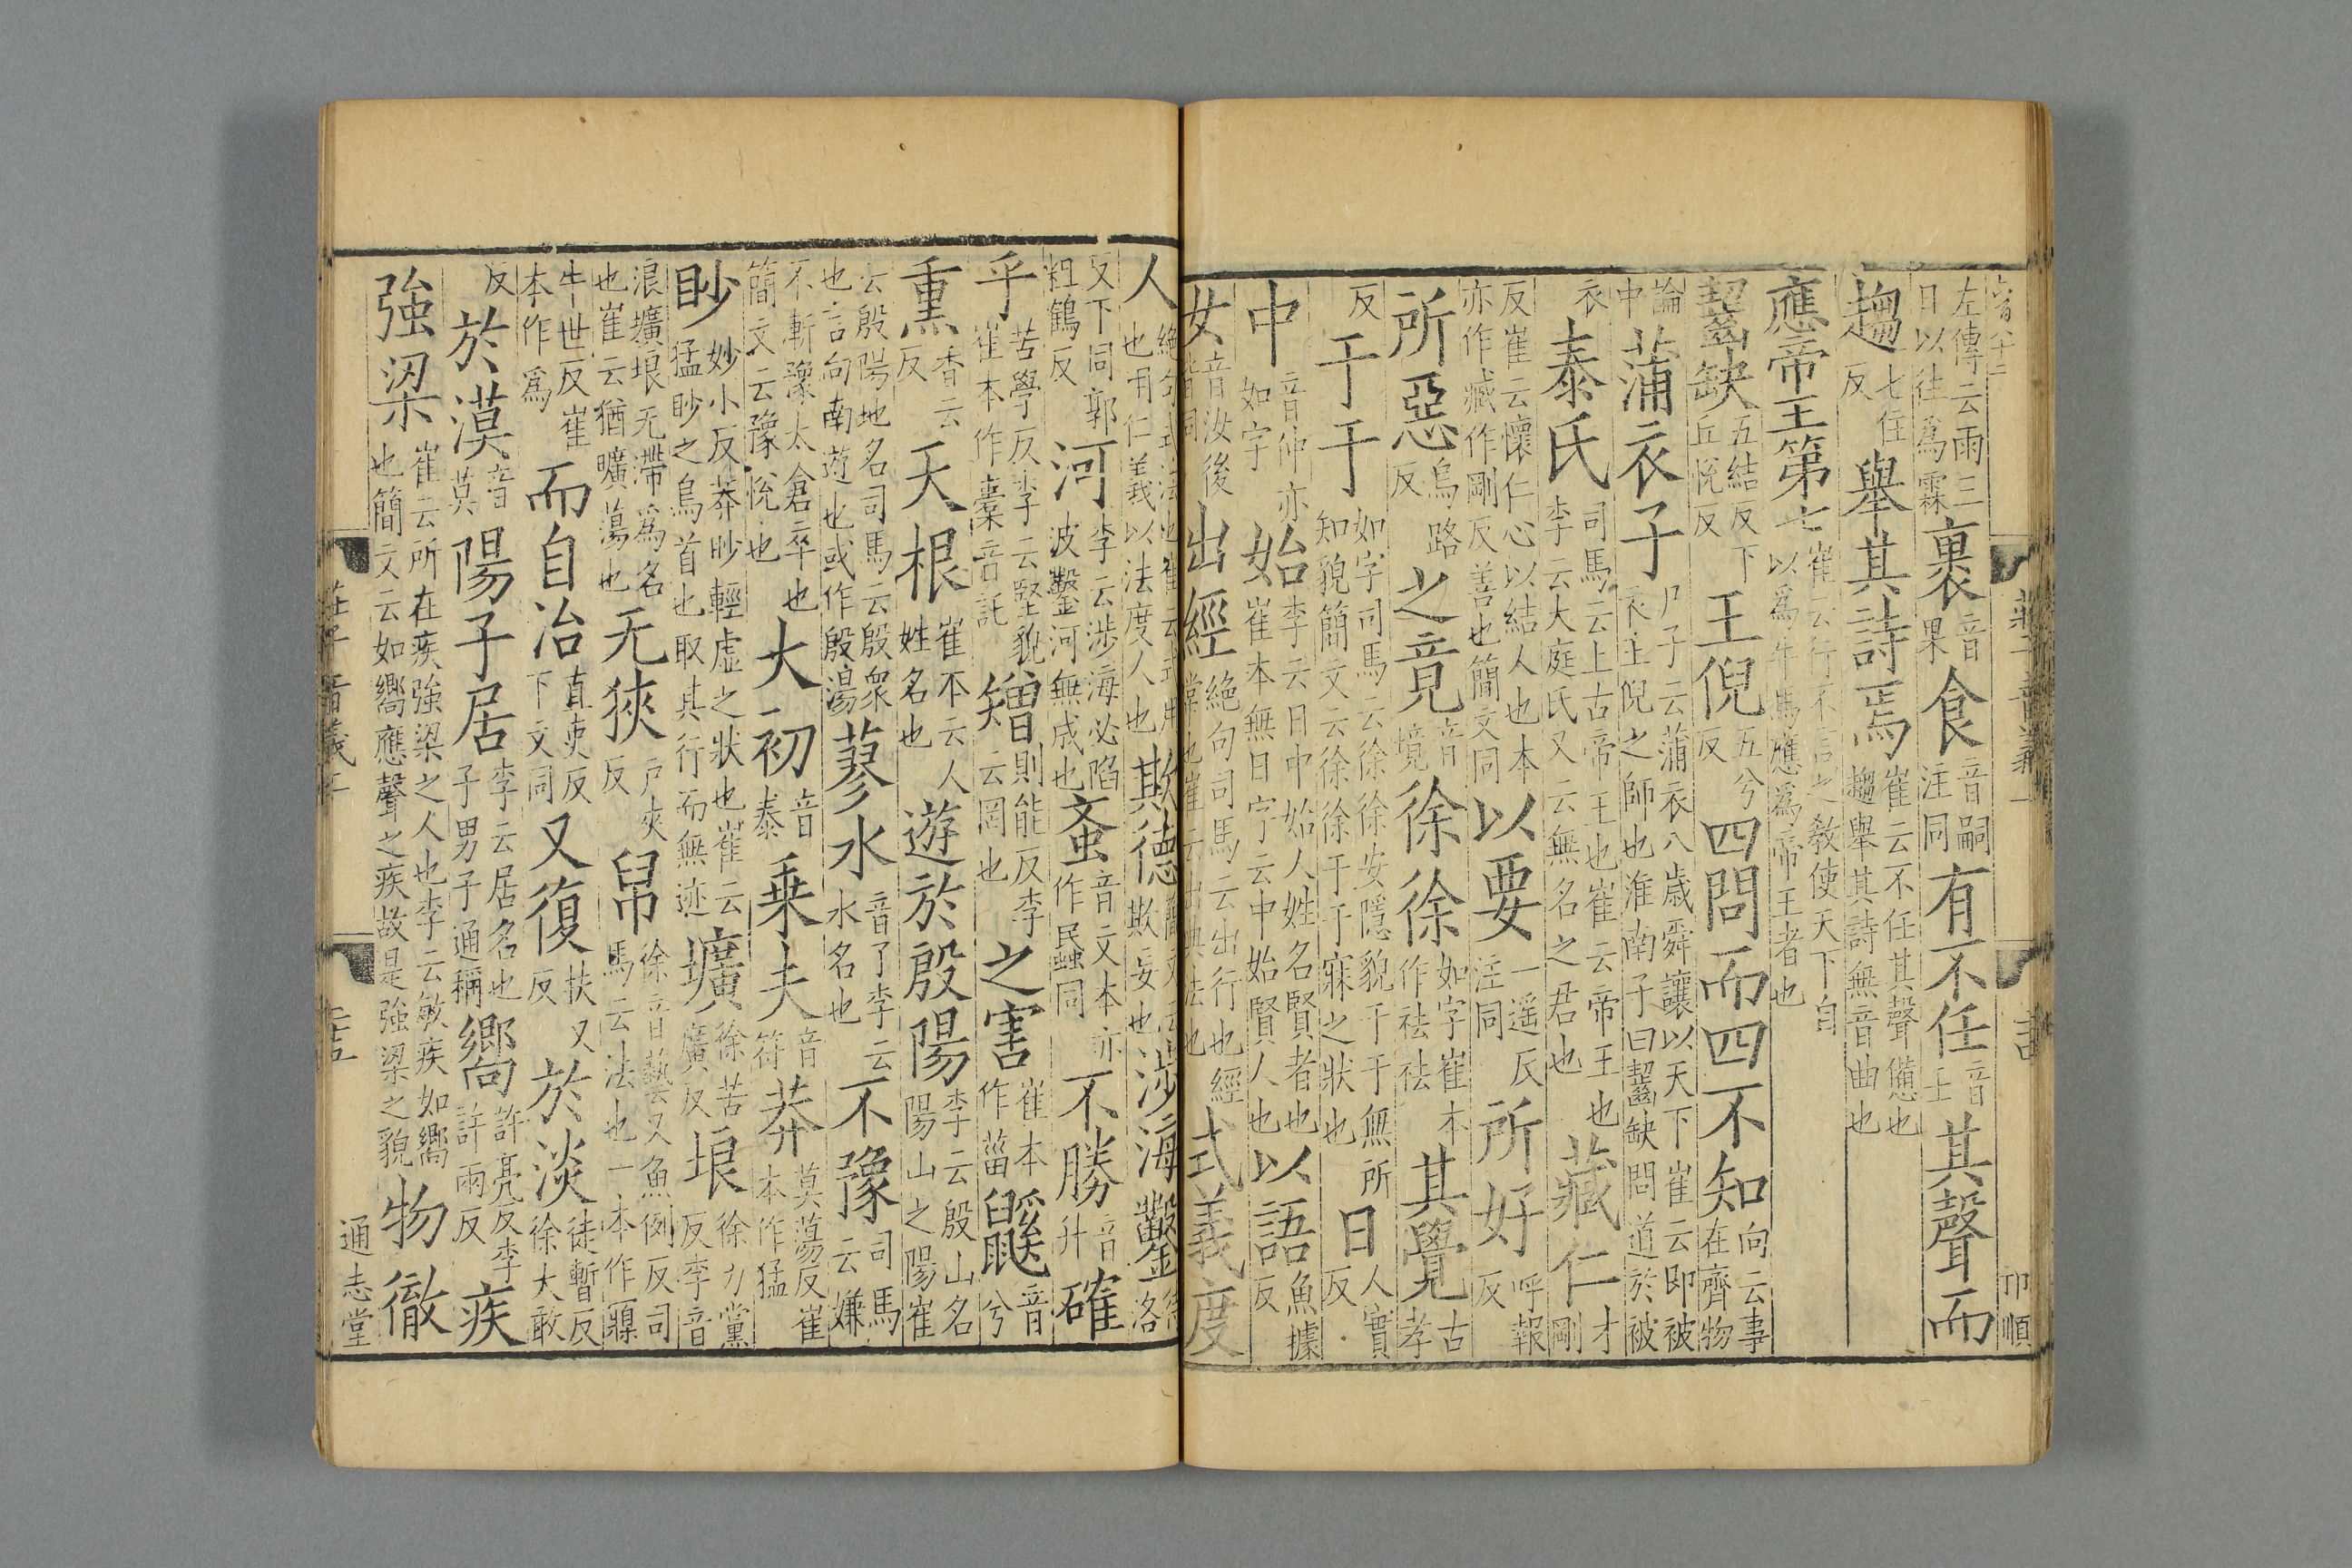 莊子音義一
卬順
左傳云雨三日以往爲霖裹音果食音嗣注同有不任音壬其聲而
趨七住反舉其詩焉崔云不任其聲憊也趨舉其詩無音曲也
應帝王第七崔云行不言之教使天下自以爲牛馬應爲帝王者也
齧缺五結反下丘悅反王倪五兮反四問而四不知向云事在齊物
論中蒲衣子尸子云蒲衣八歲舜讓以天下崔云即被衣王倪之師也淮南子曰齧缺問道於被
衣泰氏司馬云上古帝王也崔云帝王也李云大庭氏又云無名之君也藏仁才剛
反崔云懷仁心以結人也本亦作臧作剛反善也簡文同以要一遥反注同所好呼報反
所惡烏路反之竟音境徐徐如字崔本作袪袪其覺古孝
反于于如字司馬云徐徐安隱貌于于無所知貌簡文云徐徐于于寐之狀也日人實反
中音仲亦如字始李云日中始人姓名賢者也崔本無日字云中始賢人也以語魚據反
女音汝後皆同出經絕句司馬云出行也經常也崔云出典法也式義度
人絕句式法也崔云式用也用仁義以法度人也欺德簡文云欺妄也涉海鑿
反下同郭粗鶴反河李云涉海必陷波鑿河無成也蚉音文本亦作䖟同不勝音升確
乎苦學反李云堅貌崔本作橐音託矰則能反李云罔也之害崔本作菑鼷音兮
熏香云反天根崔本云人姓名也遊於殷陽李云殷山名陽山之陽崔
云殷陽地名司馬云殷衆也言向南遊也或作殷湯蓼水音了李云水名也不豫司馬云嫌
不漸豫太倉卒也簡文云豫悅也大初音泰乗夫音符莽莫蕩反崔本作猛
眇妙小反莽眇輕虛之狀也崔云猛眇之鳥首也取其行而無迹壙徐苦廣反埌徐力黨反李音
浪壙埌无滯爲名也崔云猶曠蕩也无狹戶夾反帠徐音藝又魚例反司馬云法也一本作寱
牛世反崔本作爲而自治直吏反下文同又復扶又反於淡徒暫反徐大敢
反於漠音莫陽子居李云居名也子男子通稱嚮許亮反李許兩反疾
強梁崔云所在疾強梁之人也李云敏疾如嚮也簡文云如嚮應聲之疾故是強梁之貌物徹
莊子音義一
通志堂